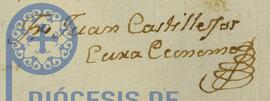 Juan Castillejos
Cura Economo
DIÓCESIS DE